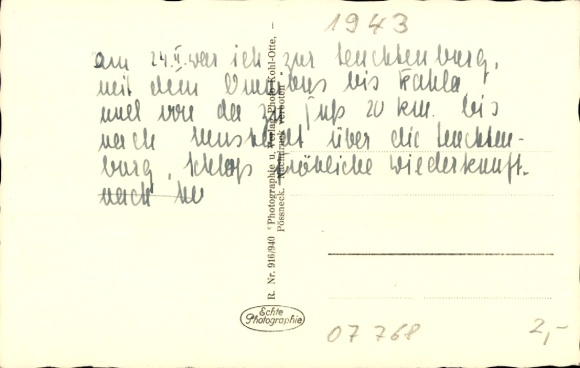 1943
am 24.II. war ich zur Leuchtenburg,
mit dem Omnibus bis Kahla
und von da zu Fuß 20 km. bis
nach Neustadt über die Leuchten-
burg, Schloß Fröhliche Wiederkunft.
nach
R. Nr. 916/940 Photographie u. Verlag Photo-Kohl-Otte,
Pössneck. Nachdruck verboten
Echte
Photographie
07 768
2,-